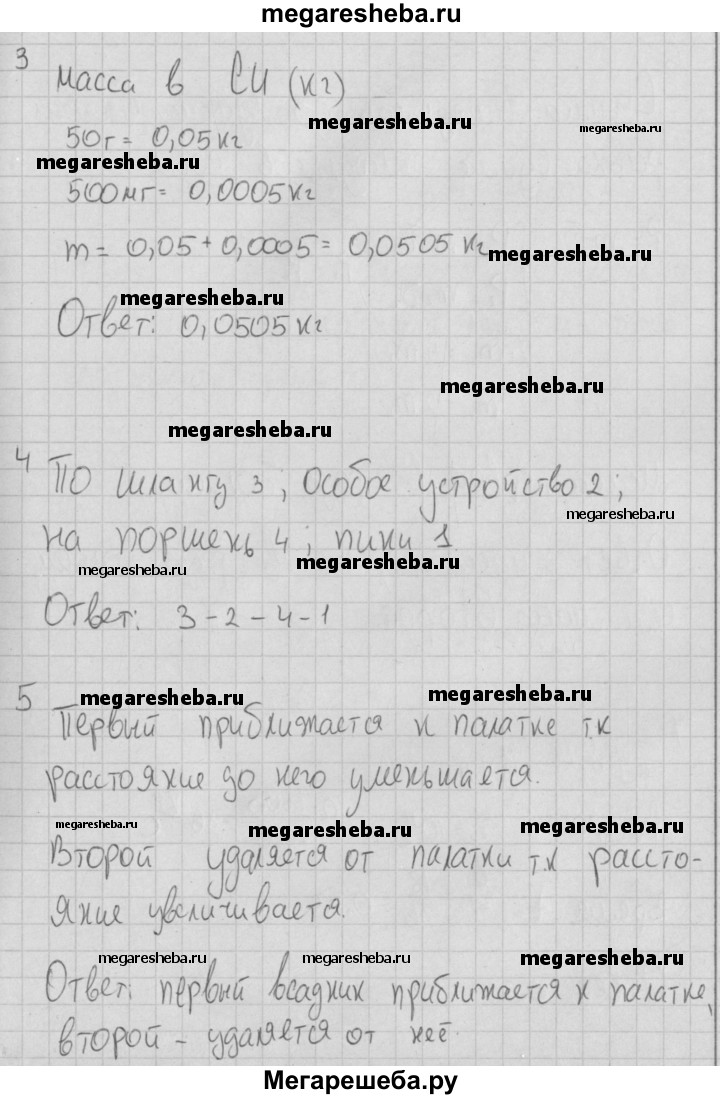 megaresheba.ru
3
Масса в СИ (кг)
megaresheba.ru
megaresheba.ru
50г = 0,05 кг
megaresheba.ru
500мг = 0,0005кг
m = 0,05 + 0,0005 = 0,0505 кг
megaresheba.ru
megaresheba.ru
Ответ: 0,0505 кг
megaresheba.ru
megaresheba.ru
4
По шлангу 3, особое устройство 2;
megaresheba.ru
на поршень 4; пики 1
megaresheba.ru
megaresheba.ru
Ответ: 3-2-4-1
5
megaresheba.ru
megaresheba.ru
Первый приближается к палатке т.к
расстояние до него уменьшается.
megaresheba.ru
megaresheba.ru
megaresheba.ru
Второй удаляется от палатки т.к рассто-
яние увеличивается.
megaresheba.ru
megaresheba.ru
megaresheba.ru
Ответ: первый всадник приближается к палатке,
второй - удаляется от неё.
Мегарешеба.ру